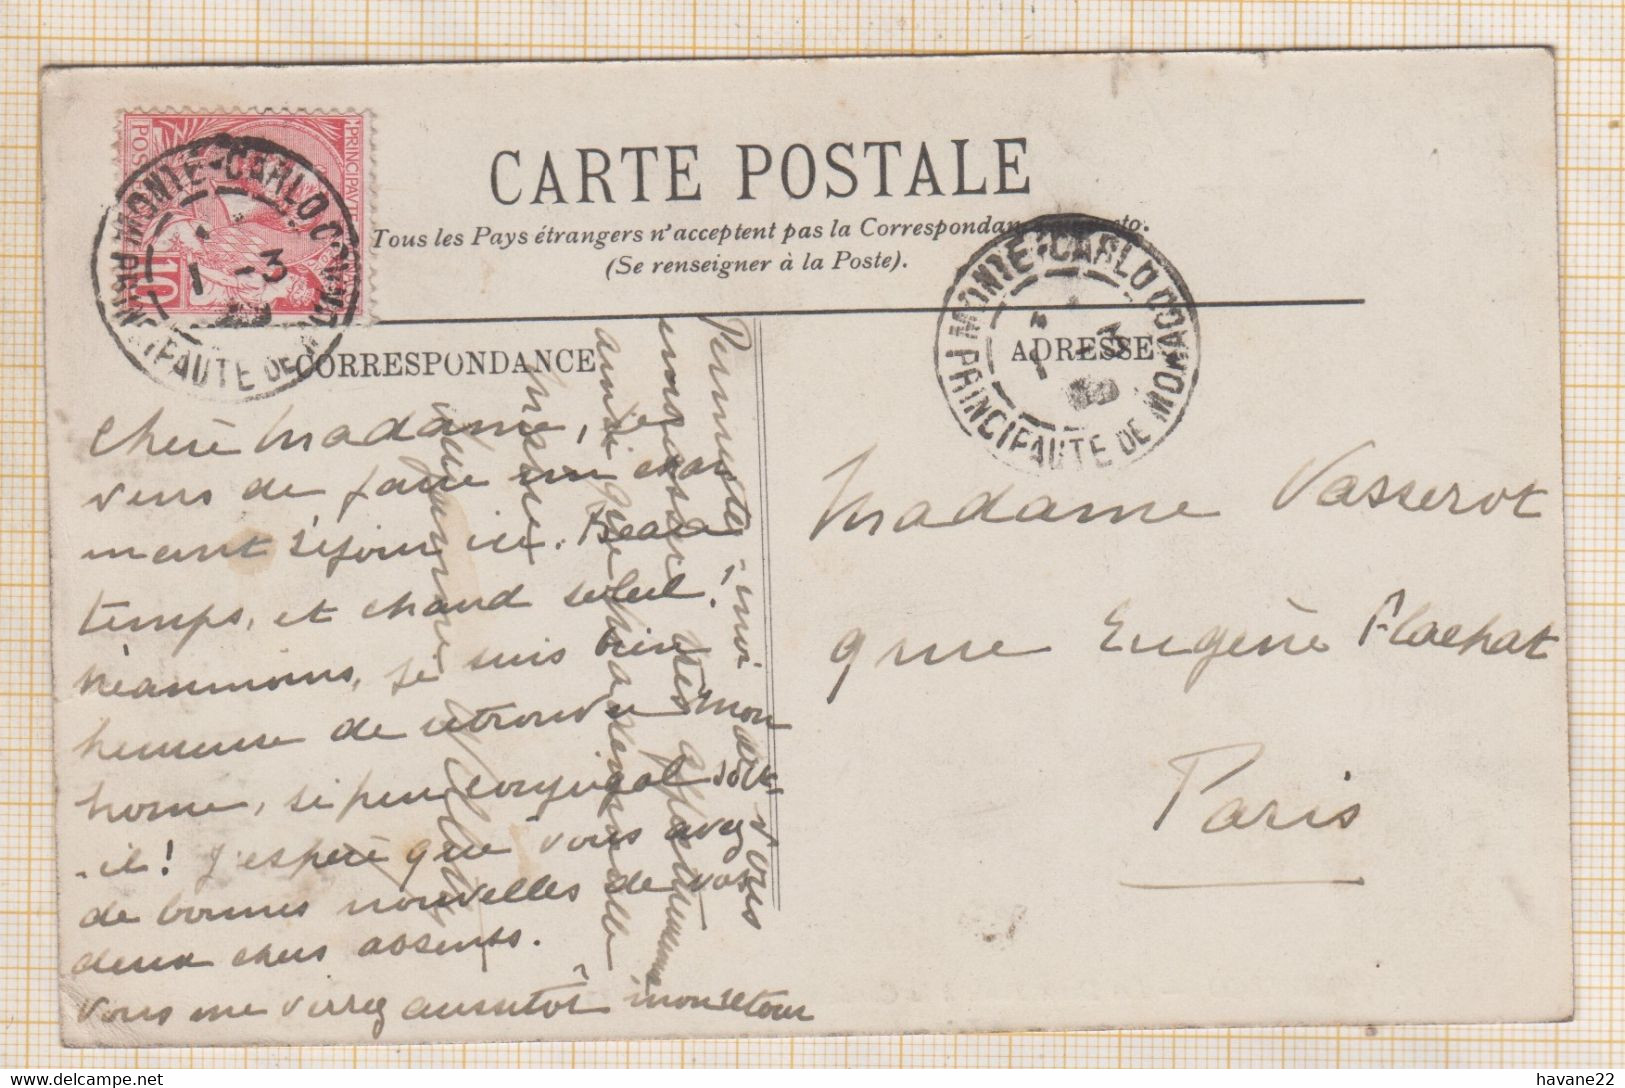 CARTE POSTALE
Tous les Pays étrangers n'acceptent pas la Correspondan to.
(Se renseigner à la Poste).
PRINCIPAUTÉ
POS
10
MONTE-CARLO CONDAMINE
PRINCIPAUTE DE MONACO
1 -3
MONTE-CARLO CONDAMINE
PRINCIPAUTE DE MONACO
CORRESPONDANCE
ADRESSE
Chère Madame, Je
viens de faire un char
mant séjour ici. Beau
temps, et chaud soleil!
Néanmoins, je suis bien
heureuse de retrouver mon
home, si peu conjugal soit-
-il! J'espère que vous avez
de bonnes nouvelles de vos
deux chers absents.
Vous me verrez aussitôt mon retour
Permettez-moi de vous
embrasser très affectueusement
ainsi que Mademoiselle
Madame Vasserot
9 rue Eugène Flachat
Paris
havane22